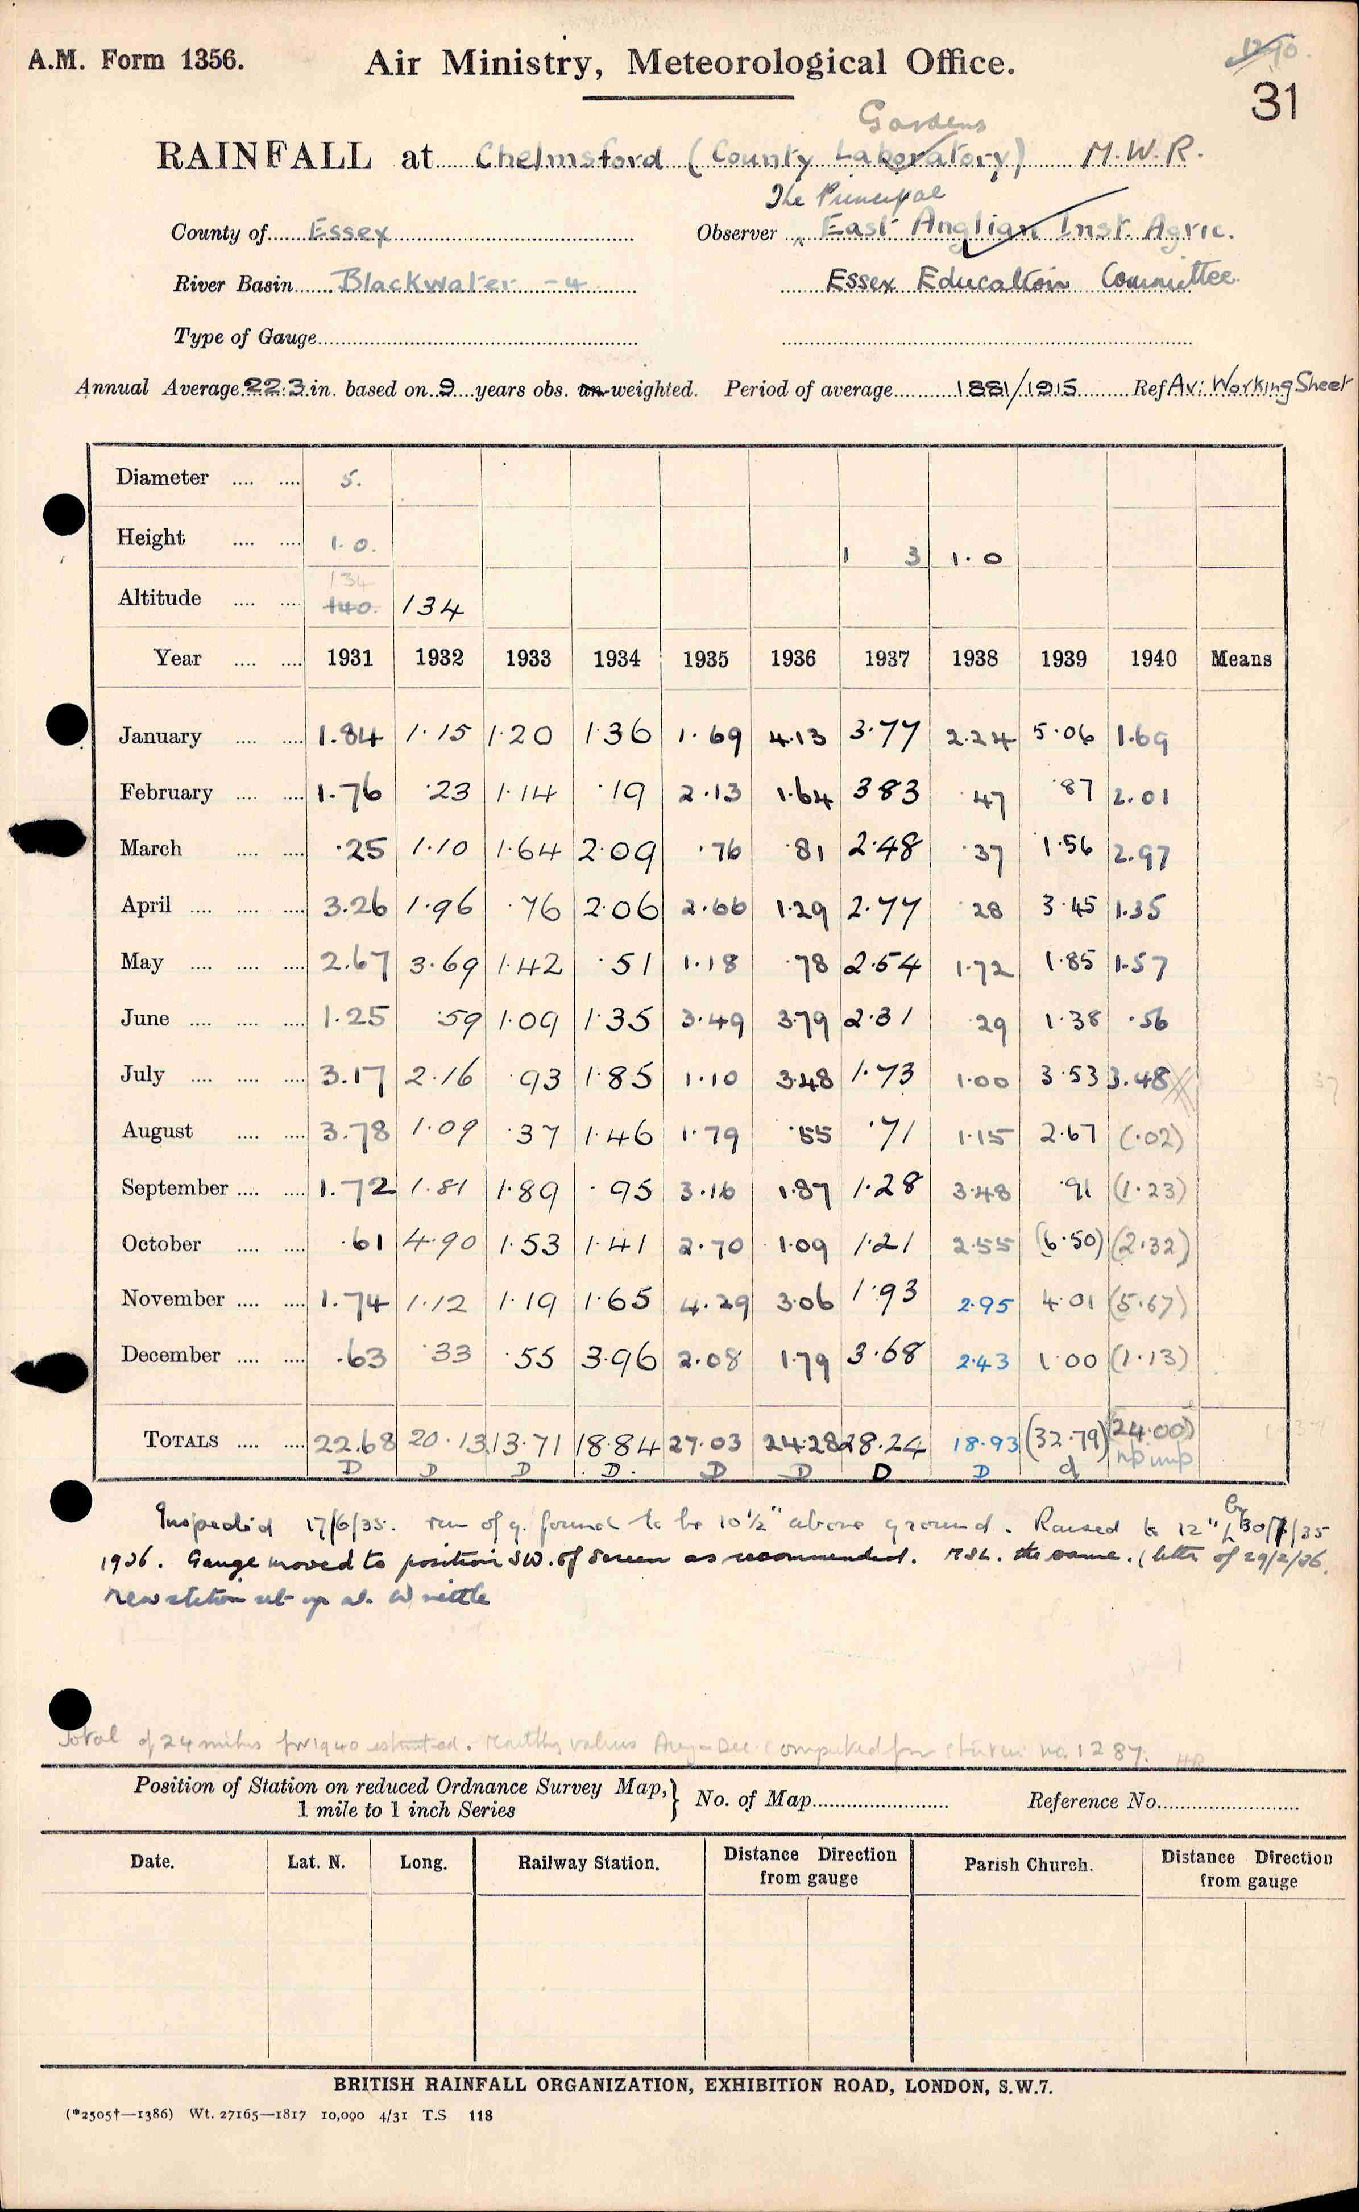 A.M. Form 1356. Air Ministry, Meteorological Office. 1290.
31
Gardens
RAINFALL at Chelmsford (County Laboratory) M.W.R.
The Principal
County of Essex Observer East Anglian Inst. Agric.
River Basin Blackwater - 4 Essex Education Committee
Type of Gauge
Annual Average 22.3 in. based on 9 years obs. un-weighted. Period of average 1881/1915 Ref Av: Working Sheet
Diameter .... .... 5.
Height .... .... 1.0. 1 3 1.0
134
Altitude .... .... 140. 134
Year .... .... 1931 1932 1933 1934 1935 1936 1937 1938 1939 1940 Means
January .... .... 1.84 1.15 1.20 1.36 1.69 4.13 3.77 2.24 5.06 1.69
February .... .... 1.76 .23 1.14 .19 2.13 1.64 3.83 .47 .87 2.01
March .... .... .25 1.10 1.64 2.09 .76 .81 2.48 .37 1.56 2.97
April .... .... .... 3.26 1.96 .76 2.06 2.66 1.29 2.77 .28 3.45 1.35
May .... .... .... 2.67 3.69 1.42 .51 1.18 .78 2.54 1.72 1.85 1.57
June .... .... .... 1.25 .59 1.09 1.35 3.49 3.79 2.31 .29 1.38 .56
July .... .... .... 3.17 2.16 .93 1.85 1.10 3.48 1.73 1.00 3.53 3.48
August .... .... 3.78 1.09 .37 1.46 1.79 .55 .71 1.15 2.67 (.02)
September .... .... 1.72 1.81 1.89 .95 3.16 1.87 1.28 3.48 .91 (1.23)
October .... .... .61 4.90 1.53 1.41 2.70 1.09 1.21 2.55 (6.50) (2.32)
November .... .... 1.74 1.12 1.19 1.65 4.29 3.06 1.93 2.95 4.01 (5.67)
December .... .... .63 .33 .55 3.96 2.08 1.79 3.68 2.43 1.00 (1.13)
TOTALS .... .... 22.68 20.13 13.71 18.84 27.03 24.28 28.24 18.93 (32.79) (24.00)
D D D D D D D D d
Inspected 17/6/35. rim of g. found to be 10½" above ground. Raised to 12" by 30/7/35
1936. Gauge moved to position SW. of Screen as recommended. MSL. the same. (letter of 29/2/36.
New station set up at Writtle
Total of 24 inches for 1940 estimated. Monthly values Aug - Dec. computed from station no. 1287. HR
Position of Station on reduced Ordnance Survey Map, } No. of Map Reference No.
1 mile to 1 inch Series
Date. Lat. N. Long. Railway Station. Distance Direction from gauge Parish Church. Distance Direction from gauge
BRITISH RAINFALL ORGANIZATION, EXHIBITION ROAD, LONDON, S.W.7.
(*2505†—1386) Wt. 27165—1817 10,000 4/31 T.S 118